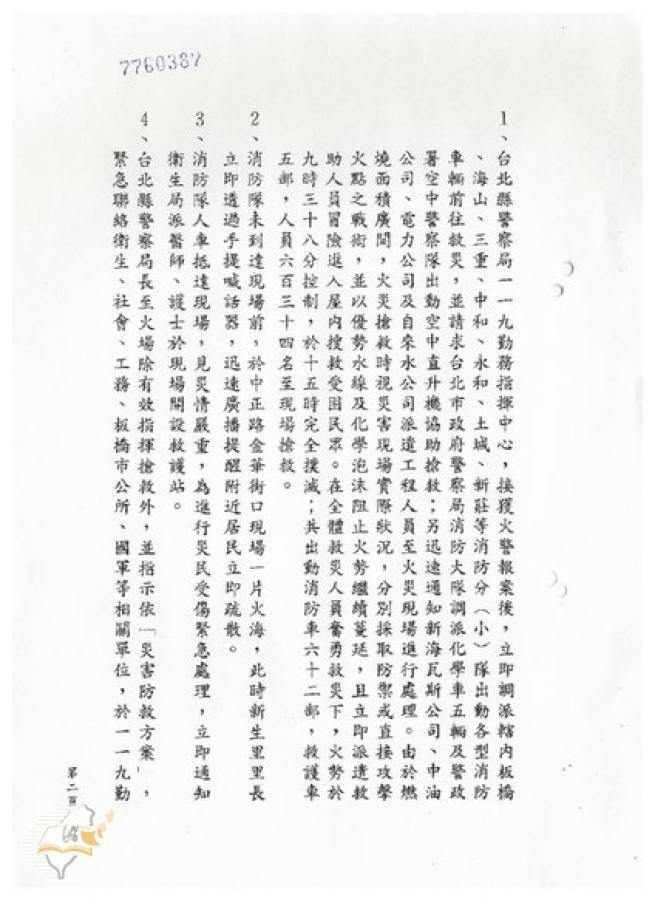 7760387
1、台北縣警察局一一九勤務指揮中心，接獲火警報案後，立即調派轄內板橋
、海山、三重、中和、永和、土城、新莊等消防分（小）隊出動各型消防
車輛前往救災，並請求台北市政府警察局消防大隊調派化學車五輛及警政
署空中警察隊出動空中直升機協助搶救；另迅速通知新海瓦斯公司、中油
公司、電力公司及自來水公司派遣工程人員至火災現場進行處理。由於燃
燒面積廣闊，火災搶救時視災害現場實際狀況，分別採取防禦或直接攻擊
火點之戰術，並以優勢水線及化學泡沫阻止火勢繼續蔓延，且立即派遣救
助人員冒險進入屋內搜救受困民眾。在全體救災人員奮勇救災下，火勢於
九時三十八分控制，於十五時完全撲滅；共出動消防車六十二部，救護車
五部，人員六百三十四名至現場搶救。
2、消防隊未到達現場前，於中正路金華街口現場一片火海，此時新生里里長
立即透過手提喊話器，迅速廣播提醒附近居民立即疏散。
3、消防隊人車抵達現場，見災情嚴重，為進行災民受傷緊急處理，立即通知
衛生局派醫師、護士於現場開設救護站。
4、台北縣警察局長至火場除有效指揮搶救外，並指示依「災害防救方案」，
緊急聯絡衛生、社會、工務、板橋市公所、國軍等相關單位，於一一九勤
第二頁